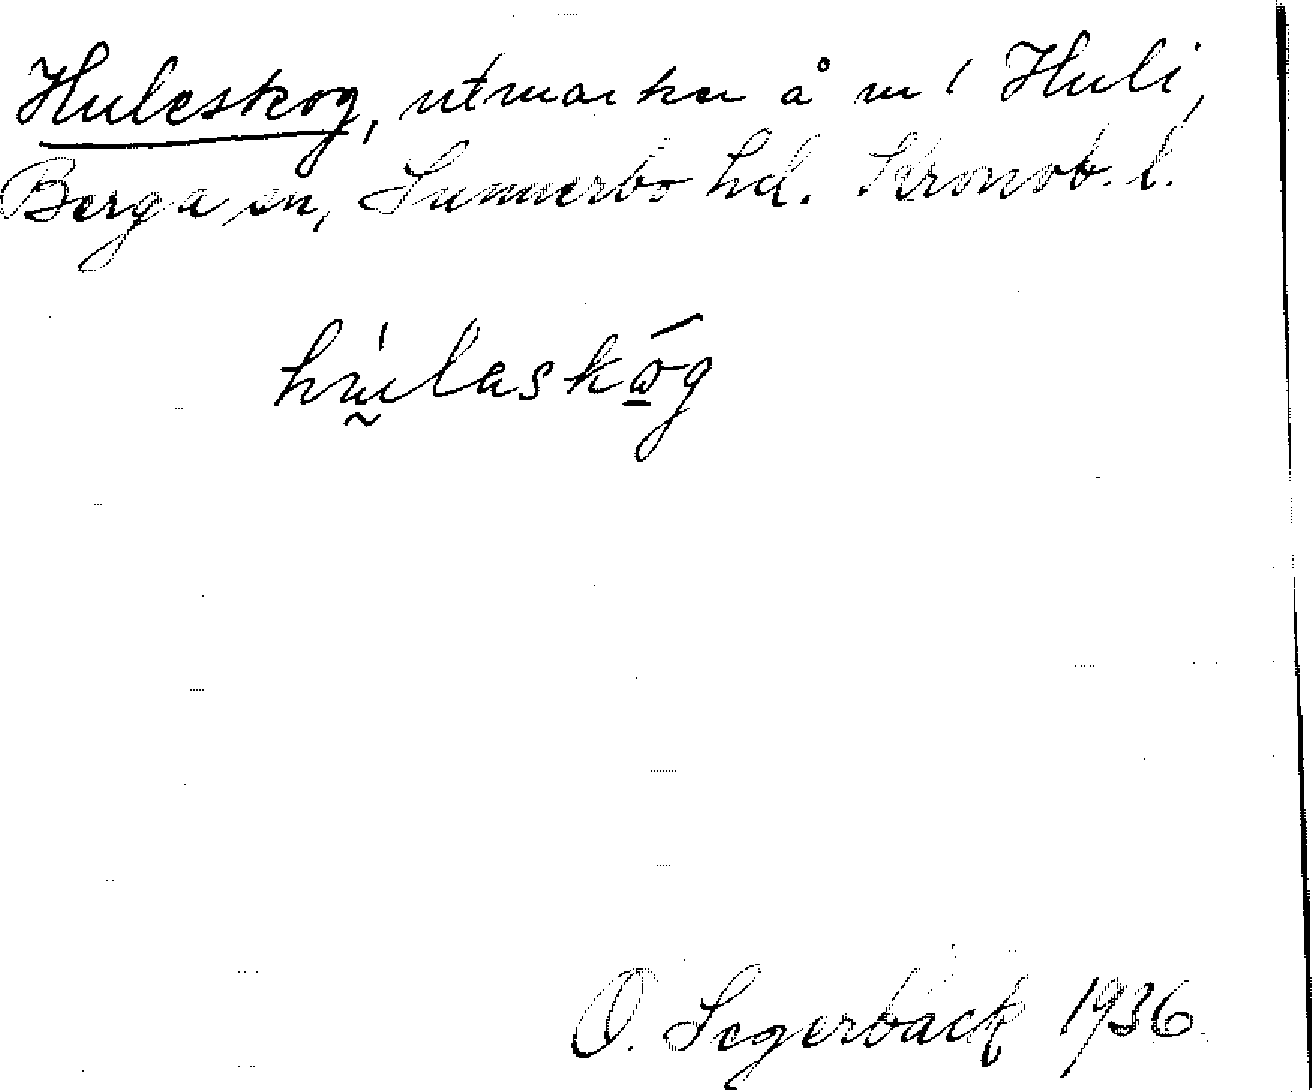 Huleskog, utmarken å m i Huli,
Berga sn, Sunnerbo hd. Kronob. l.
hùlaskóg
O. Segerbäck 1936